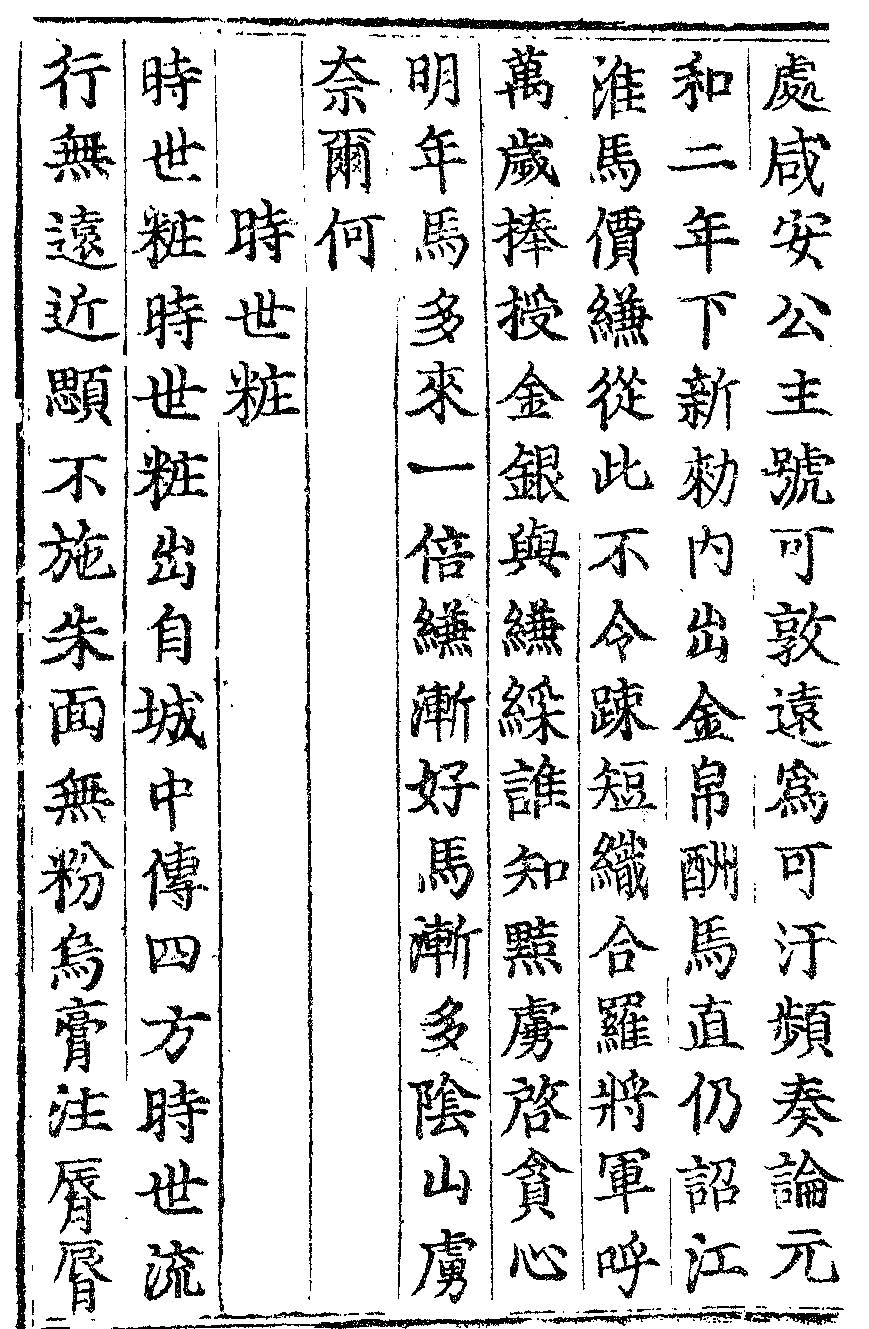 處咸安公主號可敦遠爲可汗頻奏論元
和二年下新勑內出金帛酬馬直仍詔江
淮馬價縑從此不令踈短織合羅將軍呼
萬歲捧授金銀與縑綵誰知黠虜啓貪心
明年馬多來一倍縑漸好馬漸多陰山虜
奈爾何
時世粧
時世粧時世粧出自城中傳四方時世流
行無遠近顋不施朱面無粉烏膏注脣脣